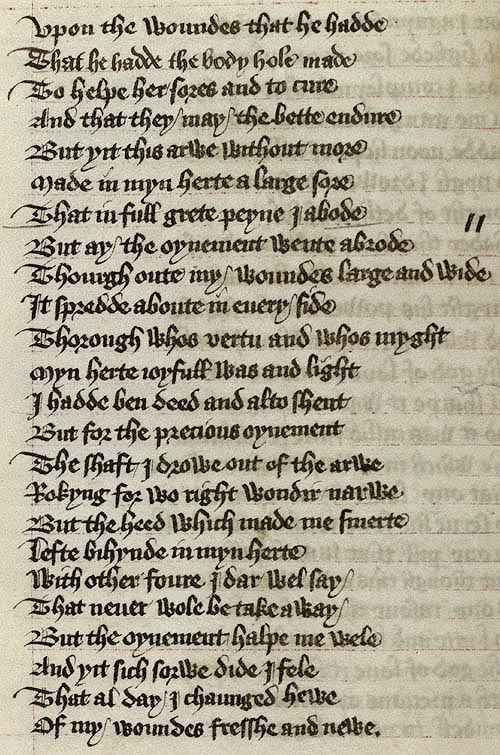 Vpon the woundes that he hadde
That he hadde the body hole made
To helpe her sores and to cure
And that they may the bette endure
But yit this arwe without more
Made in myn herte a large sore
That in full grete peyne I abode
But ay the oynement wente abrode
Thourgh oute my woundes large and wide
It spredde aboute in euery side
Thorough whos vertu and whos myght
Myn herte ioyfull was and light
I hadde ben deed and alto shent
But for the precious oynement
The shaft I drowe out of the arwe
Rokyng for wo right wondir narwe
But the heed which made me smerte
Lefte bihynde in myn herte
With other foure I dar wel say
That neuer wole be take away
But the oynement halpe me wele
And yit sich sorwe dide I fele
That al day I chaunged hewe
Of my woundes fresshe and newe.